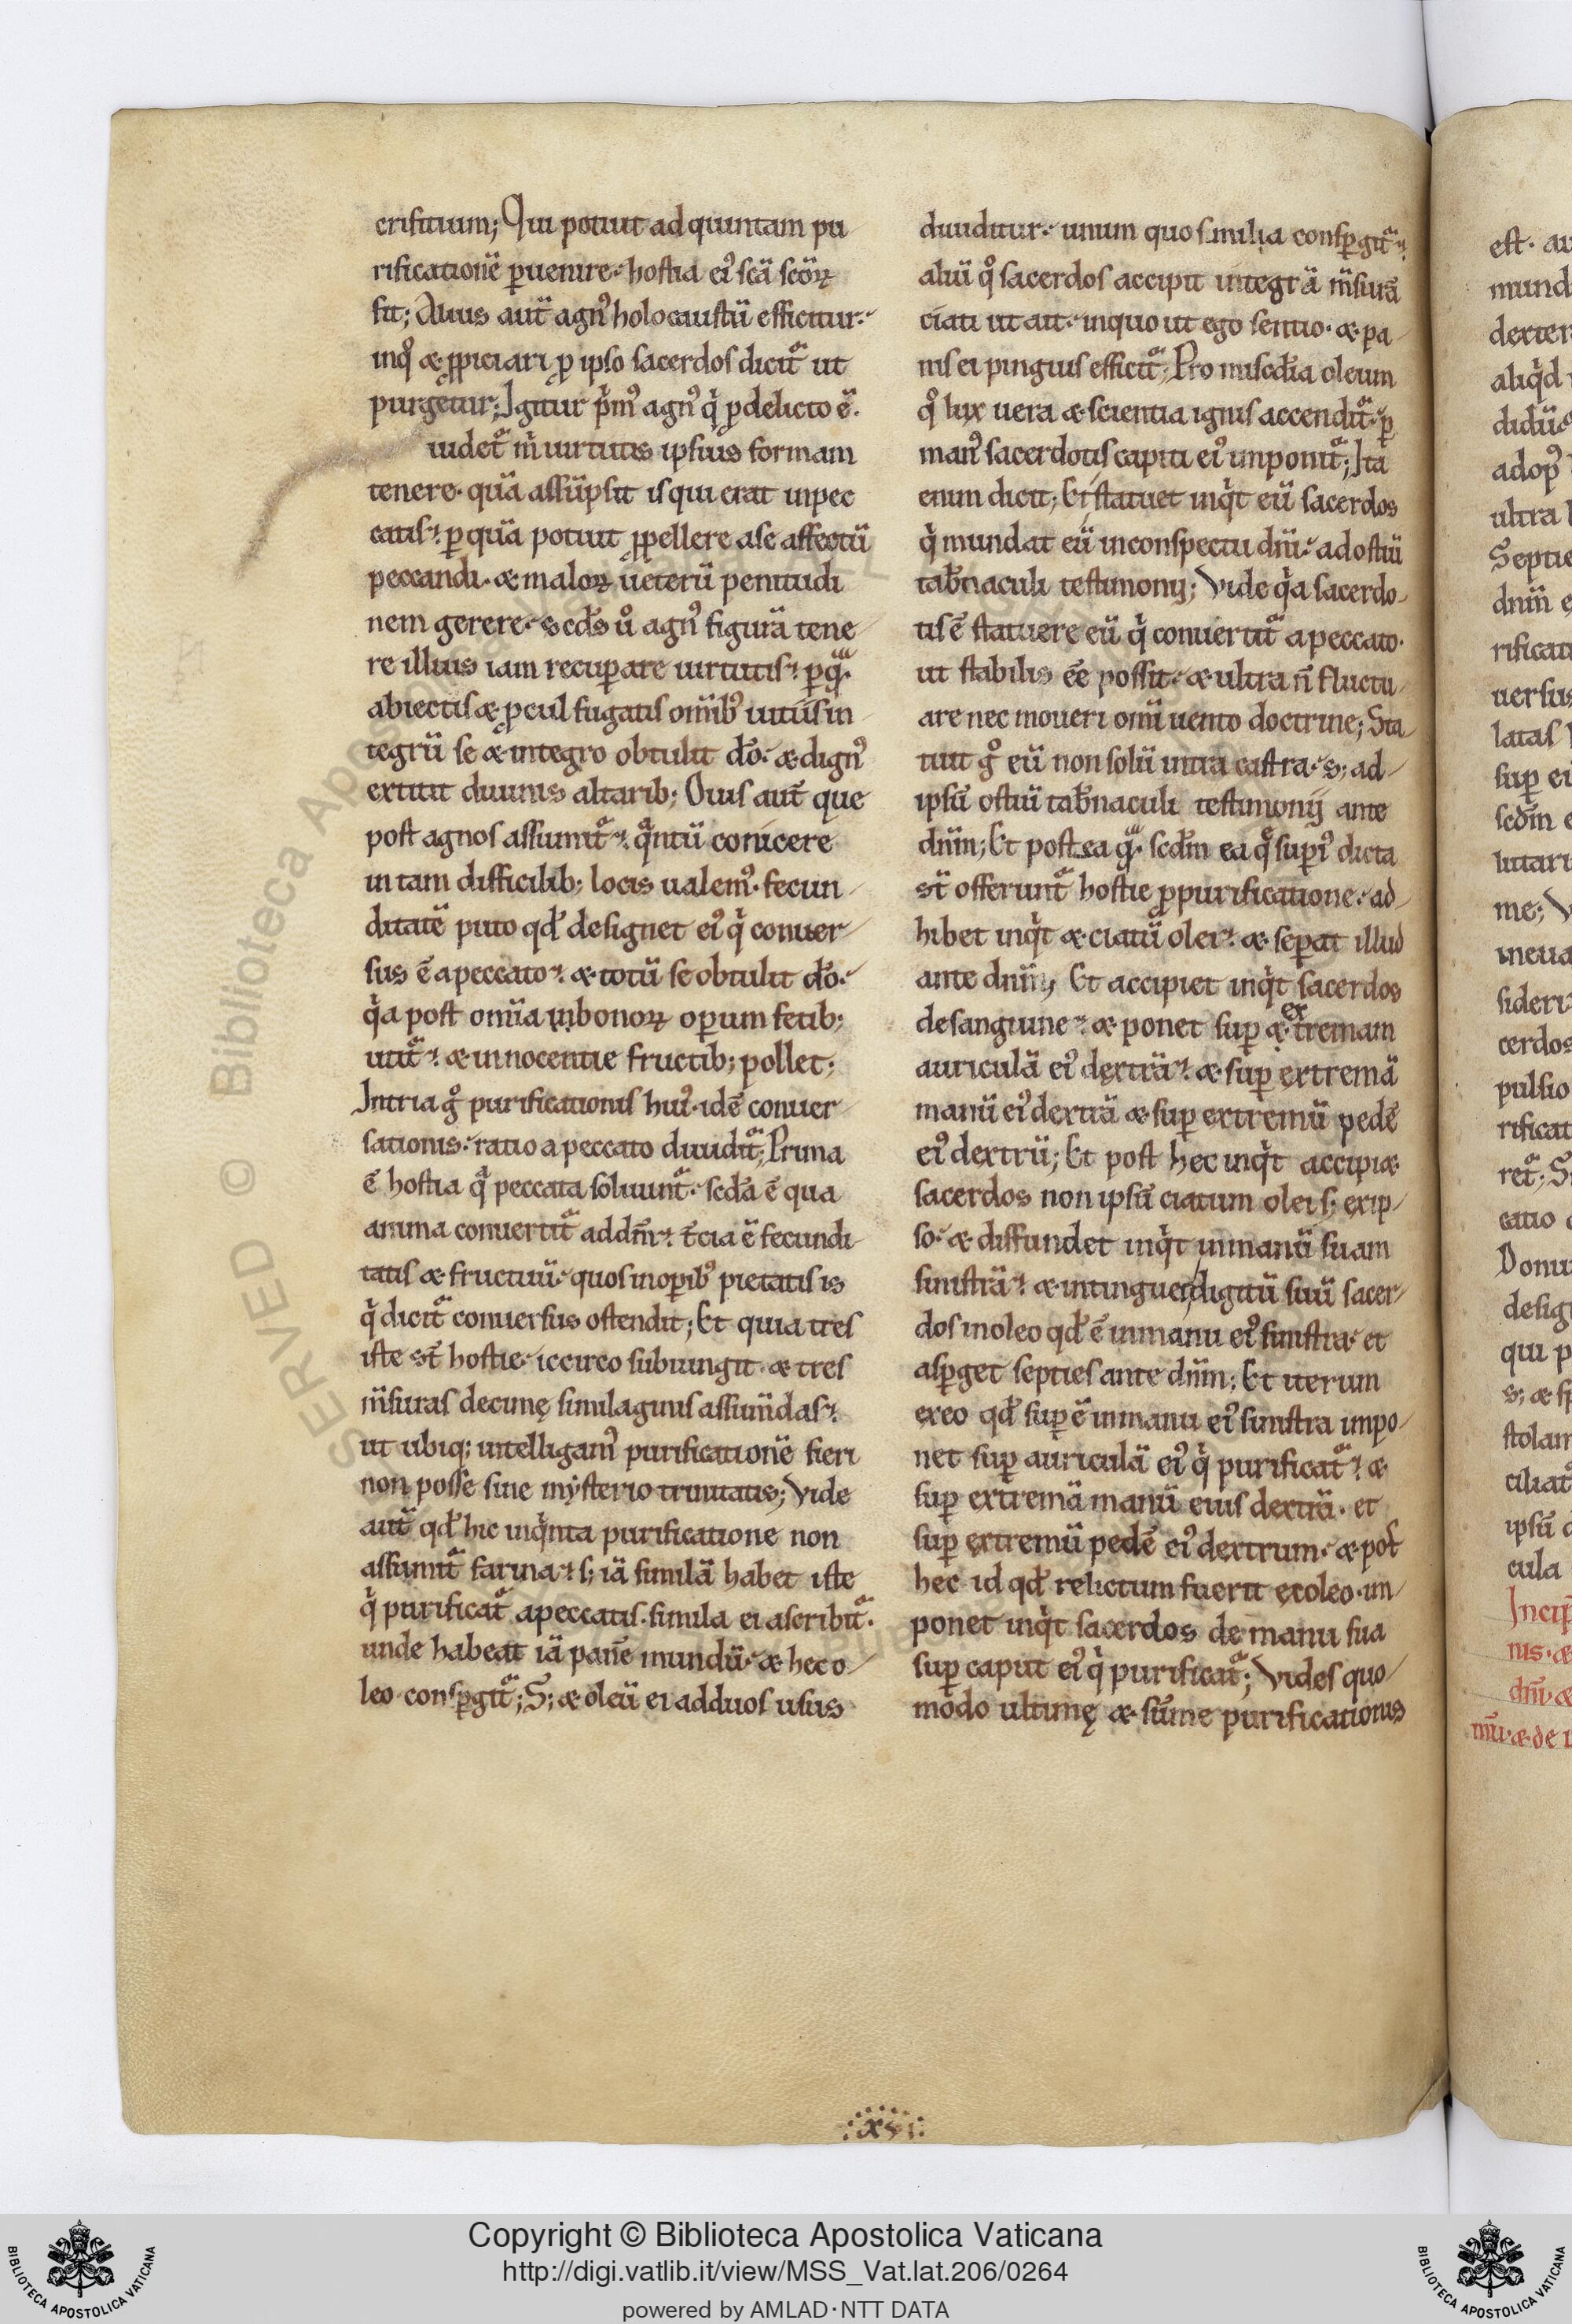 crifitium; Qui potuit ad quintam pu
rificationē ꝑuenire hostia ei᷒ scā scōꝝ
fit; Auus aut̄ agn᷒ holocaustū efficitur
inq̊ æ ꝓpiciari ꝓ ipso sacerdos dicit᷑ ut
purgetur; Igitur p̓m᷒ agn᷒ q̓ ꝓ delicto ē.
uidet᷑ m̓ uirtutis ipsius formam
tenere. quā assūpsit is qui erat inpec
catis. ꝑ quā potuit ꝓpellere a se affectū
peccandi. æ maloꝝ ueterū penitudi
nem gerere. scd̄s ů agn᷒ figurā tene
re illius iam recuꝑare uirtutis ꝑ q̄.
abiectis æ ꝓcul fugatis om̄ib᷒ uitiis in
tegrū se æ integro obtulit dō. æ dign᷒
extitit diuinis altarib; Ouis aut̄ que
post agnos assumit᷑. q̓ntū conicere
in tam difficilib; locis ualem᷒. fecun
ditatē puto qd̄ designet ei᷒ q̓ conuer
sus ē a peccato. æ totū se obtulit dō.
q̓a post om̄ia in bonoꝝ oꝑum fetib;
utit᷑. æ innocentie fructib; pollet;
In tria g̊ purificationis hui᷒. idē conuer
sationis. ratio a peccato diuidit᷑; Prima
ē hostia q̄ peccata soluunt᷑. scd̄a ē qua
anima conuertit᷑ ad dm̄. t̄cia ē fecundi
tatis æ fructuū quos in oꝑib᷒ pietatis is
q̓ dicit᷑ conuersus ostendit; Et quia tres
iste st̄ hostie iccirco subiungit æ tres
m̄suras decimę similaginis assum̄das.
ut ubiq; intelligam᷒ purificationē fieri
non posse sine mysterio trinitatis; Vide
aut̄ qd̄ hic in q̓nta purificatione non
assumit᷑ farina s; iā similā habet iste
q̓ purificat᷑ a peccatis. simila ei ascribit᷑.
unde habeat iā panē mundū. æ hec o
leo consꝑgit᷑; S; æ oleū ei ad duos usus
diuiditur. unum quo similia consꝑgit᷑.
aliū q̊ sacerdos accipit integrā m̄surā
ciati ut ait. in quo ut ego sentio. æ pa
nis ei pinguis efficit᷑; Pro miscd̄ia oleum
q̊ lux uera æ scientia ignis accendit᷑. ꝑ
man᷒ sacerdotis capiti ei᷒ imponit᷑; Ita
enim dicit; Et statuet inq̓t eū sacerdos
q̓ mundat eū in conspectu dn̄i. ad ostiū
tab̄naculi testimonij; Vide q̓a sacerdo
tis ē statuere eū q̓ conuertit᷑ a peccato.
ut stabilis eē possit. æ ultra n̄ fluctu
are nec moueri omī uento doctrine; Sta
tuit g̊ eū non solū intra castra. s; ad
ipsū ostiū tab̄naculi testimonij ante
dnm̄; Et postea q̄. scd̄m ea q̄ suꝑi᷒ dicta
st̄ offerunt᷑ hostie ꝓ purificatione. ad
hibet inq̓t æ ciatū olei. æ seꝑat illud
ante dnm̄; Et accipiet inq̓t sacerdos
de sanguine. æ ponet suꝑ æ extremam
auriculā ei᷒ dextrā. æ suꝑ extremā
manū ei᷒ dextrā æ suꝑ extremū pedē
ei᷒ dextrū; Et post hec inq̓t accipiæ
sacerdos non ipsū ciatum olei s; ex ip
so. æ diffundet inq̓t in manū suam
sinistrā. æ intinguet digitū suū sacer
dos in oleo qd̄ ē in manu ei᷒ sinistra et
asꝑget septies ante dnm̄; Et iterum
ex eo qd̄ suꝑ ē in manu ei᷒ sinistra impo
net suꝑ auriculā ei᷒ q̓ purificat᷑. æ
suꝑ extremā manū eius dextrā. et
suꝑ extremū pedē ei᷒ dextrum. æ post
hec id qd̄ relictum fuerit ex oleo. im
ponet inq̓t sacerdos de manu sua
suꝑ caput ei᷒ q̓ purificat᷑; Vides quo
modo ultimę æ sum̄e purificationis
xvi
est. au
mund
dexter
aliq̓d
adop᷒
ultra
Septie
dnm̄ e
rificati
uersus
latas
suꝑ ei
scd̄m e
lutari
me; V
sideri
cerdos
pulsio
rificat
ret᷑; S
catio
Donu
desig
qui p
stolam
ciliat᷑
ipsū
cula
Incip̄
nis. æ
dn̄i. æ
© Biblioteca Apos
SERVED
Copyright © Biblioteca Apostolica Vaticana
http://digi.vatlib.it/view/MSS_Vat.lat.206/0264
powered by AMLAD·NTT DATA
BIBLIOTECA APOSTOLICA VATICANA
BIBLIOTECA APOSTOLICA VATICANA